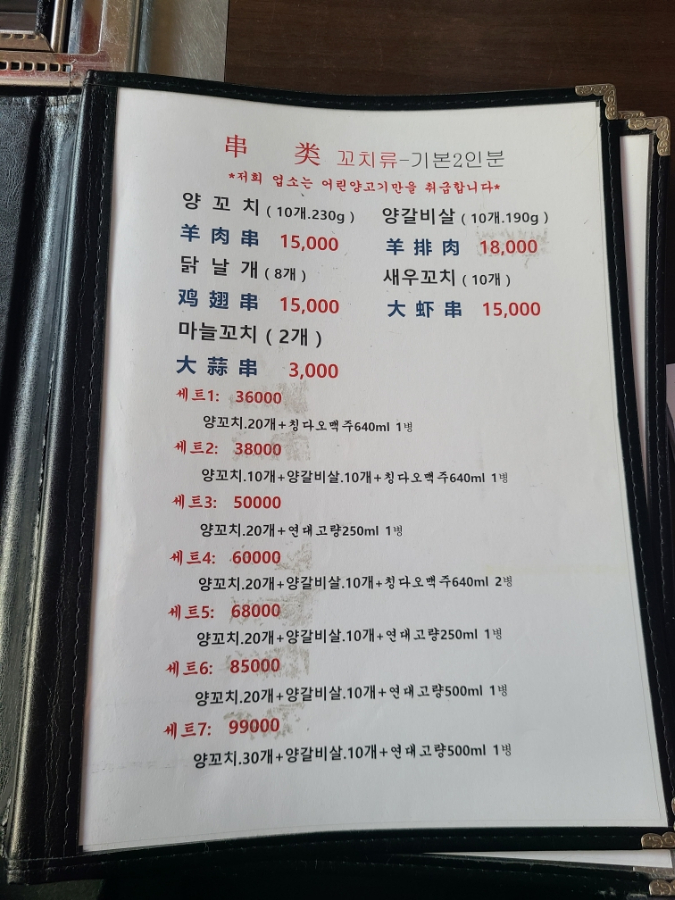 串 类 꼬치류-기본2인분
*저희 업소는 어린양고기만을 취급합니다*
양 꼬 치 ( 10개.230g ) 양갈비살 ( 10개.190g )
羊 肉 串 15,000 羊 排 肉 18,000
닭 날 개 ( 8개 ) 새우꼬치 ( 10개 )
鸡 翅 串 15,000 大 虾 串 15,000
마늘꼬치 ( 2개 )
大 蒜 串 3,000
세트1: 36000
양꼬치.20개+칭다오맥주640ml 1병
세트2: 38000
양꼬치.10개+양갈비살.10개+칭다오맥주640ml 1병
세트3: 50000
양꼬치.20개+연태고량250ml 1병
세트4: 60000
양꼬치.20개+양갈비살.10개+칭다오맥주640ml 2병
세트5: 68000
양꼬치.20개+양갈비살.10개+연태고량250ml 1병
세트6: 85000
양꼬치.20개+양갈비살.10개+연태고량500ml 1병
세트7: 99000
양꼬치.30개+양갈비살.10개+연태고량500ml 1병